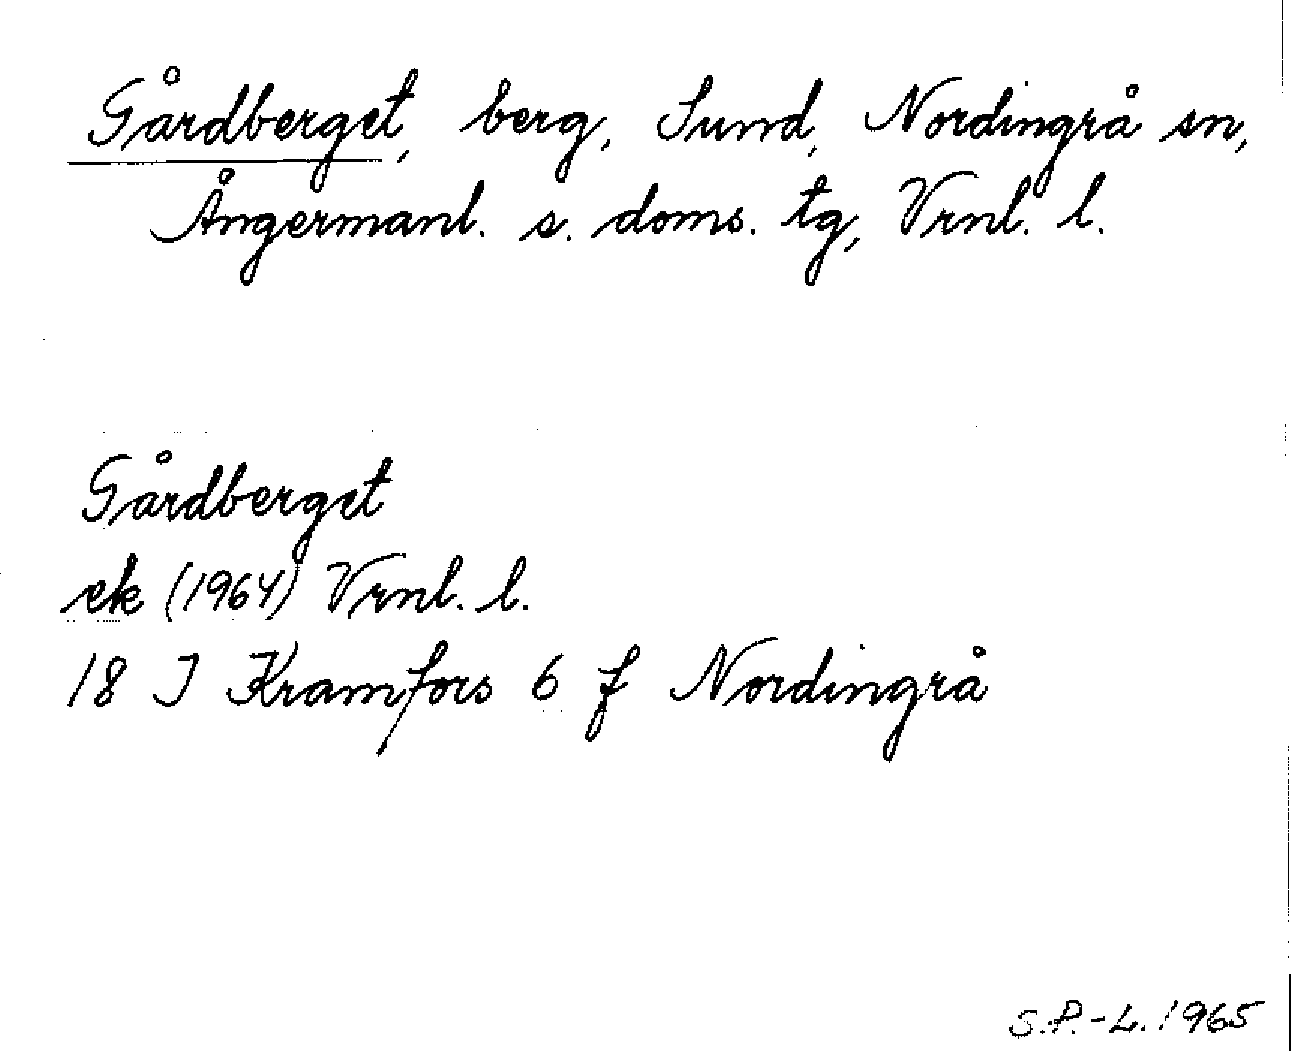 Gårdberget, berg, Sund, Nordingrå sn,
Ångermanl. s. doms. tg, Vrnl. l.
Gårdberget
ek (1964) Vrnl. l.
18 I Kramfors 6 f Nordingrå
S.P.-L. 1965